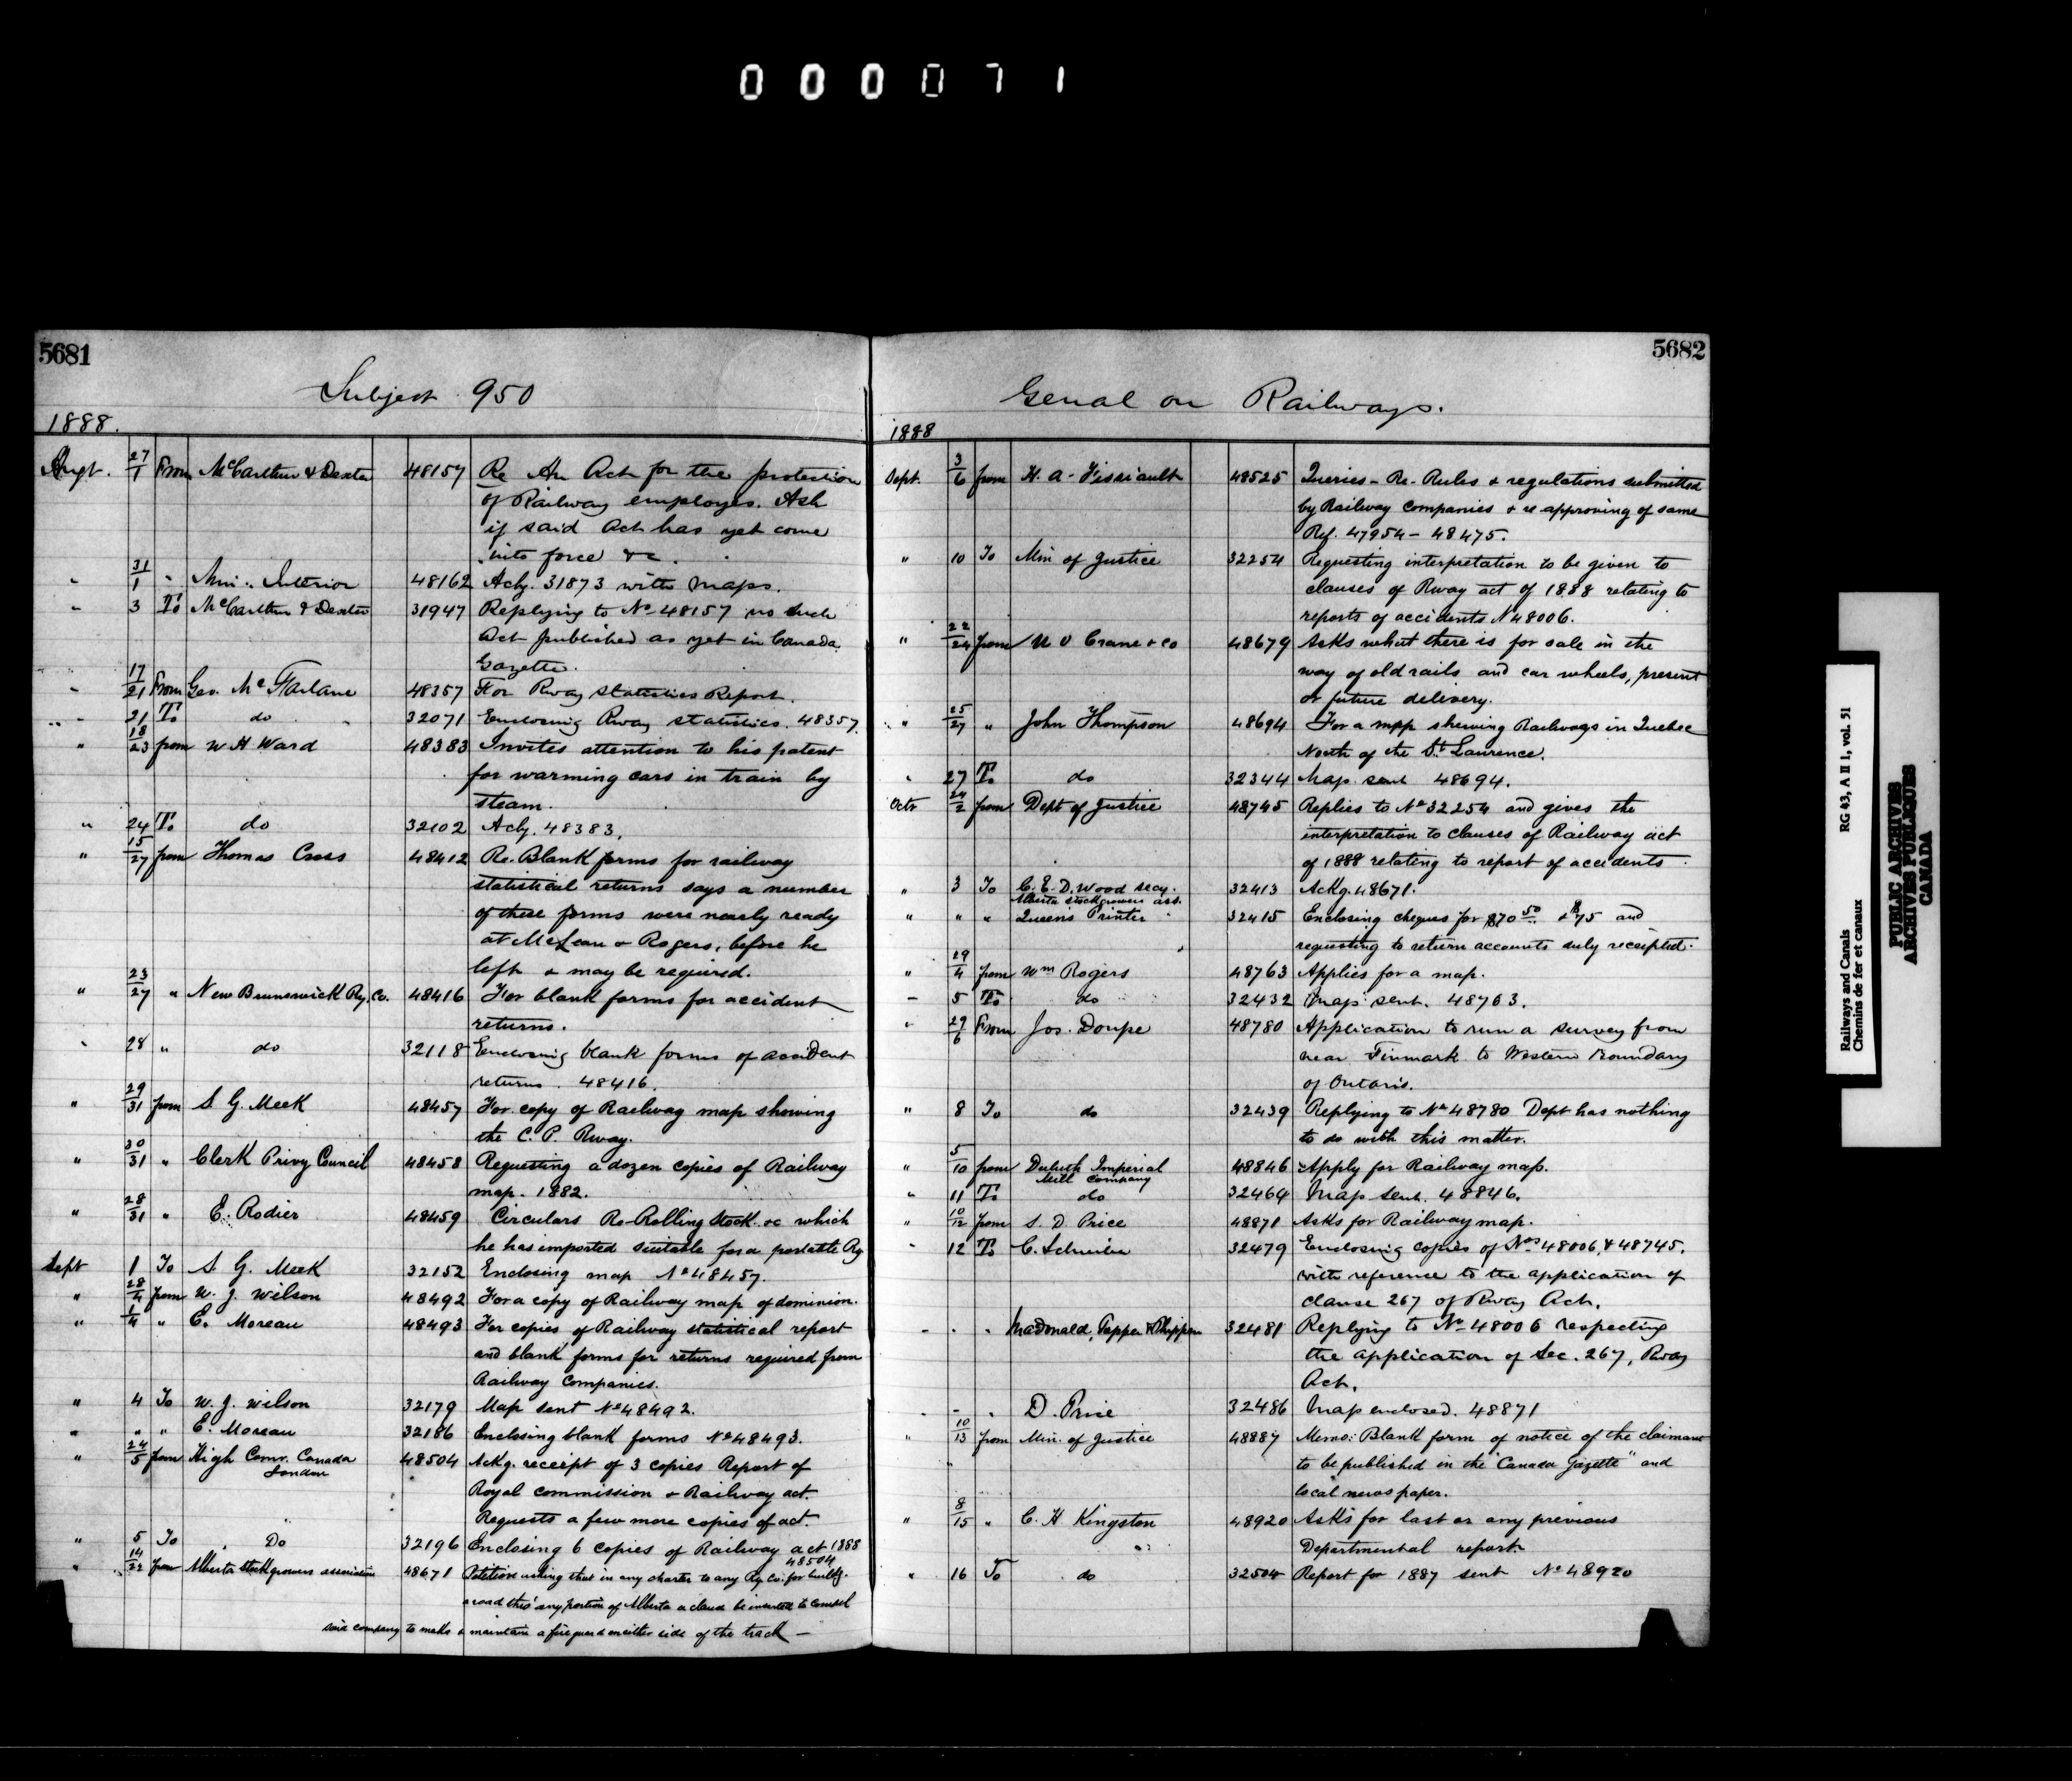 000071
5681
Subject 950
1888.
Augt. 27/1 From McCarthur & Dexter 48157 Re An Act for the protection
of Railway employes. Ask
if said Act has yet come
into force &c.
" 31/1 " Min. Interior 48162 Ackg. 31873 with maps.
" 3 To McCarthur & Dexter 31947 Replying to No 48157 no such
Act published as yet in Canada
Gazette.
" 17/21 From Geo. McFarlane 48357 For Rway statistics Report.
" 21 To do 32071 Enclosing Rway statistics. 48357.
" 18/23 from W H Ward 48383 Invites attention to his patent
for warming cars in train by
steam.
" 24 To do 32102 Ackg. 48383.
" 15/27 from Thomas Cross 48412 Re. Blank forms for railway
statistical returns says a number
of these forms were nearly ready
at McLean & Rogers, before he
left & may be required.
" 23/27 " New Brunswick Ry. Co. 48416 For blank forms for accident
returns.
" 28 " do 32118 Enclosing blank forms of accident
returns. 48416.
" 29/31 from S. G. Meek 48457 For copy of Railway map showing
the C. P. Rway.
" 30/31 " Clerk Privy Council 48458 Requesting a dozen copies of Railway
map. 1882.
" 28/31 " E. Rodier 48459 Circulars Re-Rolling Stock &c which
he has imported suitable for a portable Ry
Sept 1 To S. G. Meek 32152 Enclosing map No 48457.
" 28/4 from W. J. Wilson 48492 For a copy of Railway map of dominion.
" 1/4 " E. Moreau 48493 For copies of Railway statistical report
and blank forms for returns required from
Railway Companies.
" 4 To W. J. Wilson 32179 Map sent No 48492.
" " " E. Moreau 32186 Enclosing blank forms No 48493.
" 24/5 from High Comr. Canada 48504 Ackg. receipt of 3 copies Report of
London
Royal commission & Railway act.
Requests a few more copies of act.
" 5 To Do 32196 Enclosing 6 copies of Railway act 1888
48504
" 14/22 from Alberta Stockgrowers association 48671 Petition asking that in any charter to any Ry. Co. for buildg.
a road thro' any portion of Alberta a clause be inserted to compel
said company to make & maintain a fire guard on either side of the track —
5682
Genual on Railways.
1888
Sept. 3/6 from H. A. Fissiault 48525 Queries - Re - Rules & regulations submitted
by Railway Companies & re approving of same
Ref. 47954 - 48475.
" 10 To Min of Justice 32254 Requesting interpretation to be given to
clauses of Rway act of 1888 relating to
reports of accidents No 48006.
" 22/24 from Crane & Co 48679 Asks what there is for sale in the
way of old rails and car wheels, present
or future delivery.
" 25/27 " John Thompson 48694 For a map shewing Railways in Quebec
North of the St. Laurence.
" 27 To do 32344 Map sent 48694.
Octr 24/2 from Dept of Justice 48745 Replies to No 32254 and gives the
interpretation to clauses of Railway act
of 1888 relating to report of accidents.
" 3 To C. E. D. Wood secy. 32413 Ackg. 48671.
Alberta Stockgrowers ass.
" " " Queen's Printer 32415 Enclosing cheques for $70 50 & $75 and
requesting to return accounts duly receipted.
" 29/4 from Wm Rogers 48763 Applies for a map.
" 5 To do 32432 Map sent. 48763.
" 29/6 From Jos. Doupe 48780 Application to run a survey from
near Finmark to Western Boundary
of Ontario.
" 8 To do 32439 Replying to No 48780 Dept has nothing
to do with this matter.
" 5/10 from Duluth Imperial 48846 Apply for Railway map.
Mill Company
" 11 To do 32464 Map sent. 48846.
" 10/12 from S. D. Price 48871 Asks for Railway map.
" 12 To C. Schreiber 32479 Enclosing copies of Nos 48006 & 48745.
with reference to the application of
clause 267 of Rway Act.
" " " MacDonald, Tupper & Phippen 32481 Replying to No 48006 respecting
the application of Sec. 267, Rway
Act.
" " " D. Price 32486 Map enclosed. 48871
" 10/13 from Min. of Justice 48887 Memo: Blank form of notice of the claimant
to be published in the "Canada Gazette" and
local newspaper.
" 8/15 " C. H Kingston 48920 Asks for last or any previous
Departmental report.
" 16 To do 32504 Report for 1887 sent No 48920
Railways and Canals RG 43, A II 1, vol. 51
Chemins de fer et canaux
PUBLIC ARCHIVES
ARCHIVES PUBLIQUES
CANADA